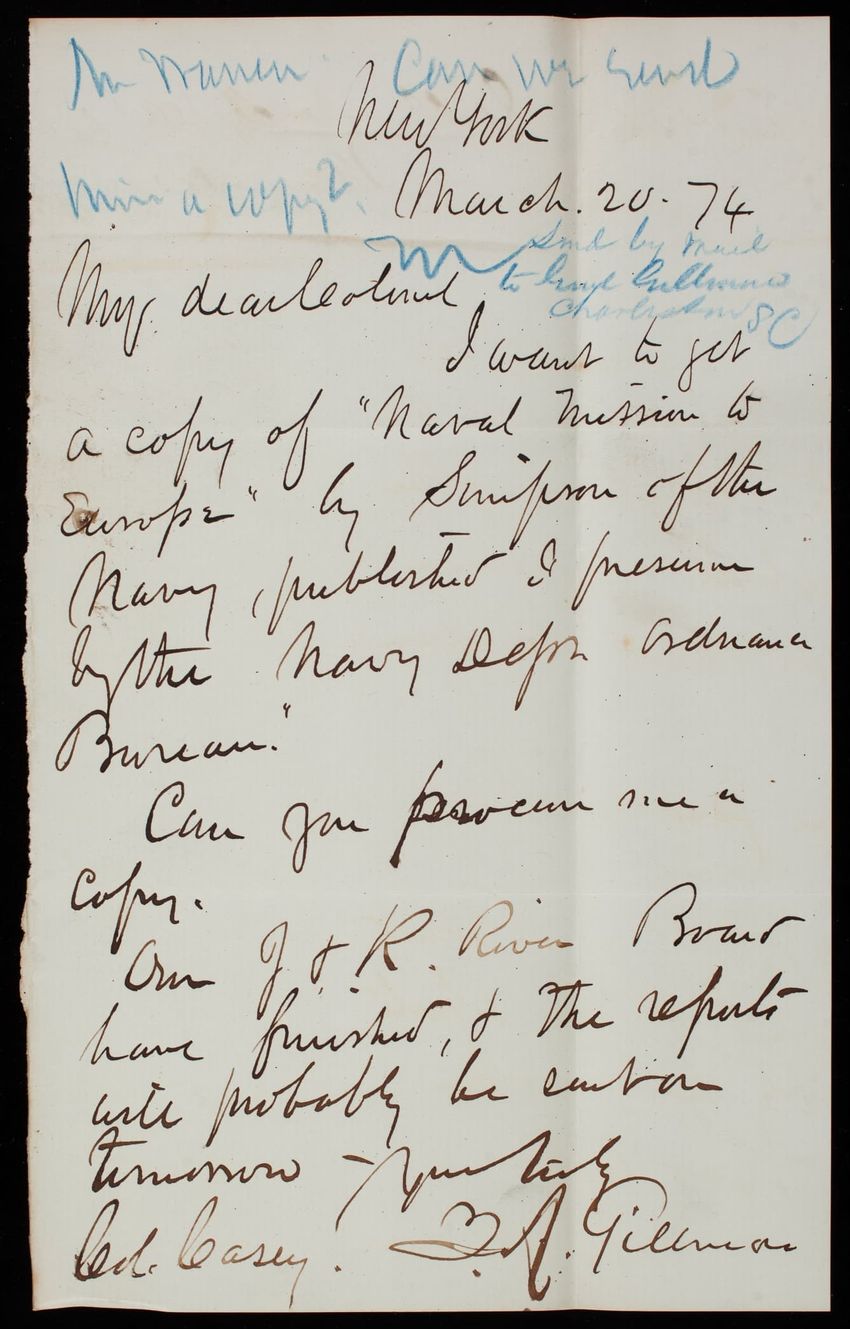 Mr Warren Can we send
New York
him a copy?
March. 20. 74
Send by mail
to Genl Gillmore
Charleston S C
My dear Colonel
I want to get
a copy of "Naval Mission to
Europe" by Simpson of the
Navy, published I presume
by the Navy Dept Ordnance
Bureau."
Can you procure me a
copy.
Our J & K. River Board
have finished, & the reports
will probably be sent on
tomorrow - Yours truly
Col. Casey. Q. A. Gillmore